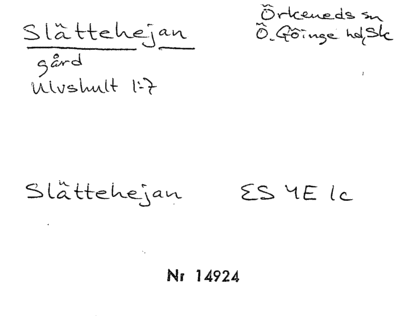 Slättehejan
Örkeneds sn
Ö. Göinge hd, Sk
gård
Ulvshult 1:7
Slättehejan ES 4E 1c
Nr 14924